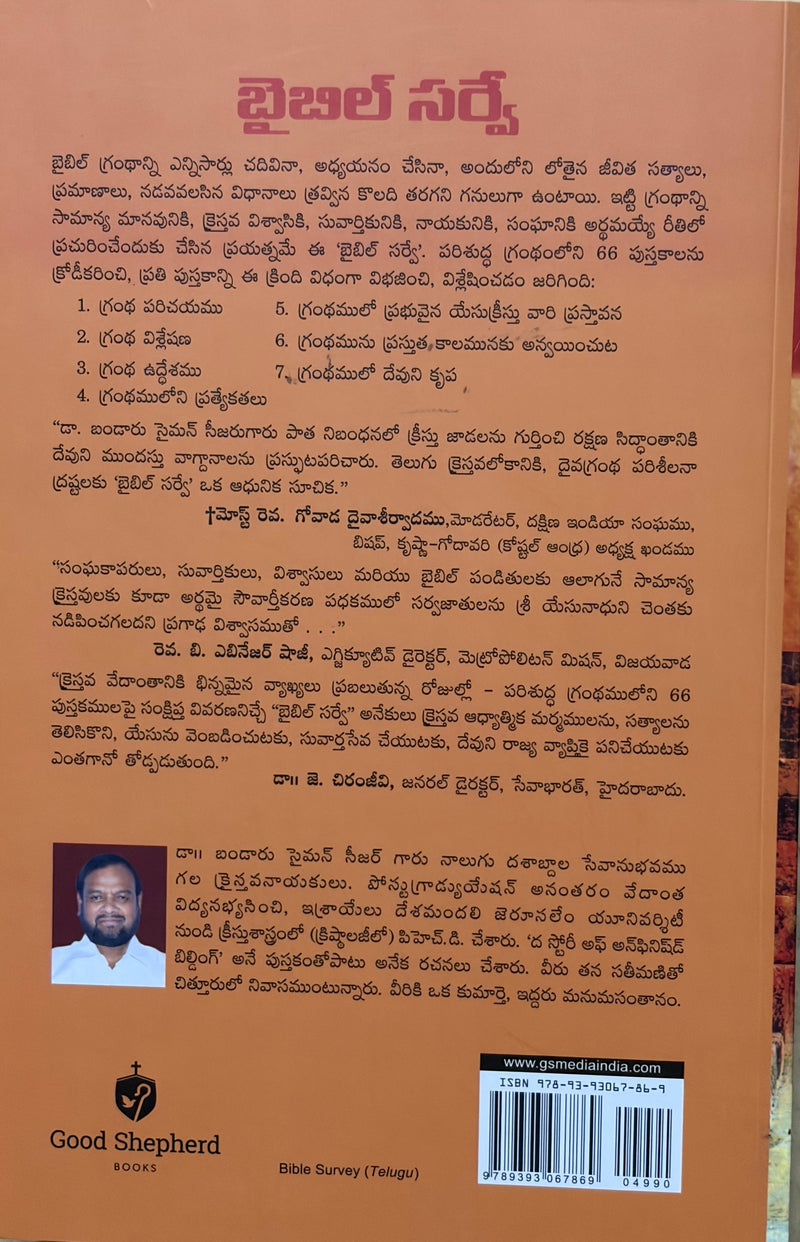 బైబిల్ సర్వే
బైబిల్ గ్రంథాన్ని ఎన్నిసార్లు చదివినా, అధ్యయనం చేసినా, అందులోని లోతైన జీవిత సత్యాలు,
ప్రమాణాలు, నడవవలసిన విధానాలు త్రవ్విన కొలది తరగని గనులుగా ఉంటాయి. ఇట్టి గ్రంథాన్ని
సామాన్య మానవునికి, క్రైస్తవ విశ్వాసికి, సువార్తికునికి, నాయకునికి, సంఘానికి అర్థమయ్యే రీతిలో
ప్రచురించేందుకు చేసిన ప్రయత్నమే ఈ 'బైబిల్ సర్వే'. పరిశుద్ధ గ్రంథంలోని 66 పుస్తకాలను
క్రోడీకరించి, ప్రతి పుస్తకాన్ని ఈ క్రింది విధంగా విభజించి, విశ్లేషించడం జరిగింది:
1. గ్రంథ పరిచయము
2. గ్రంథ విశ్లేషణ
3. గ్రంథ ఉద్ధేశము
4. గ్రంథములోని ప్రత్యేకతలు
5. గ్రంథములో ప్రభువైన యేసుక్రీస్తు వారి ప్రస్తావన
6. గ్రంథమును ప్రస్తుత కాలమునకు అన్వయించుట
7. గ్రంథములో దేవుని కృప
"డా. బండారు సైమన్ సీజరుగారు పాత నిబంధనలో క్రీస్తు జాడలను గుర్తించి రక్షణ సిద్ధాంతానికి
దేవుని ముందస్తు వాగ్దానాలను ప్రస్ఫుటపరిచారు. తెలుగు క్రైస్తవలోకానికి, దైవగ్రంథ పరిశీలనా
ద్రష్టలకు 'బైబిల్ సర్వే' ఒక ఆధునిక సూచిక."
†మోస్ట్ రెవ. గోవాడ దైవాశీర్వాదము,మోడరేటర్, దక్షిణ ఇండియా సంఘము,
బిషప్, కృష్ణా-గోదావరి (కోస్టల్ ఆంధ్ర) అధ్యక్ష ఖండము
"సంఘకాపరులు, సువార్తికులు, విశ్వాసులు మరియు బైబిల్ పండితులకు ఆలాగునే సామాన్య
క్రైస్తవులకు కూడా అర్థమై సౌవార్తీకరణ పధకములో సర్వజాతులను శ్రీ యేసునాధుని చెంతకు
నడిపించగలదని ప్రగాఢ విశ్వాసముతో . . ."
రెవ. బి. ఎబినేజర్ షాజీ, ఎగ్జిక్యూటివ్ డైరెక్టర్, మెట్రోపోలిటన్ మిషన్, విజయవాడ
"క్రైస్తవ వేదాంతానికి భిన్నమైన వ్యాఖ్యలు ప్రబలుతున్న రోజుల్లో - పరిశుద్ధ గ్రంథములోని 66
పుస్తకములపై సంక్షిప్త వివరణనిచ్చే "బైబిల్ సర్వే" అనేకులు క్రైస్తవ ఆధ్యాత్మిక మర్మములను, సత్యాలను
తెలిసికొని, యేసును వెంబడించుటకు, సువార్తసేవ చేయుటకు, దేవుని రాజ్య వ్యాప్తికై పనిచేయుటకు
ఎంతగానో తోడ్పడుతుంది."
డా॥ జె. చిరంజీవి, జనరల్ డైరక్టర్, సేవాభారత్, హైదరాబాదు.
డా॥ బండారు సైమన్ సీజర్ గారు నాలుగు దశాబ్దాల సేవానుభవము
గల క్రైస్తవనాయకులు. పోస్టుగ్రాడ్యుయేషన్ అనంతరం వేదాంత
విద్యనభ్యసించి, ఇశ్రాయేలు దేశమందలి జెరూసలేం యూనివర్శిటీ
నుండి క్రీస్తుశాస్త్రంలో (క్రిష్టాలజీలో) పిహెచ్.డి. చేశారు. 'ద స్టోరీ అఫ్ అన్‌ఫినిష్‌డ్
బిల్డింగ్' అనే పుస్తకంతోపాటు అనేక రచనలు చేశారు. వీరు తన సతీమణితో
చిత్తూరులో నివాసముంటున్నారు. వీరికి ఒక కుమార్తె, ఇద్దరు మనుమసంతానం.
Good Shepherd
BOOKS
Bible Survey (Telugu)
www.gsmediaindia.com
ISBN 978-93-93067-86-9
9789393067869
04990